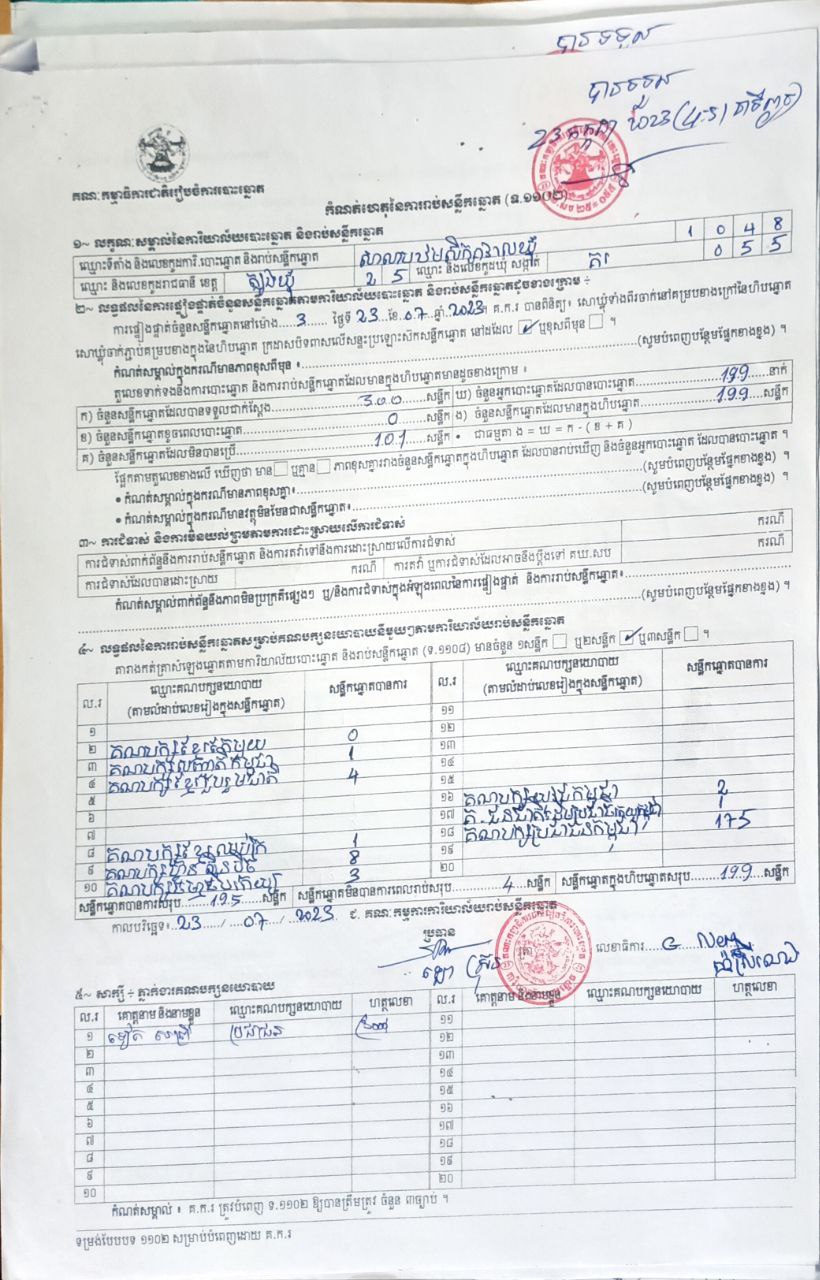 បានទទួល
បានទទួល
គណៈកម្មាធិការជាតិរៀបចំការបោះឆ្នោត
កំណត់ហេតុនៃការរាប់សន្លឹកឆ្នោត (ទ.១១០២)
១~ លក្ខណៈសម្គាល់នៃការិយាល័យបោះឆ្នោត និងរាប់សន្លឹកឆ្នោត
ឈ្មោះទីតាំង និងលេខកូដការិ.បោះឆ្នោត និងរាប់សន្លឹកឆ្នោត 1 0 4 8
ឈ្មោះ និងលេខកូដរាជធានី ខេត្ត ត្បូងឃ្មុំ 2 5 ឈ្មោះ និងលេខកូដឃុំ សង្កាត់ គរ 0 5 5
២~ លទ្ធផលនៃការផ្ទៀងផ្ទាត់ចំនួនសន្លឹកឆ្នោតតាមការិយាល័យបោះឆ្នោត និងរាប់សន្លឹកឆ្នោតដូចខាងក្រោម ÷
ការផ្ទៀងផ្ទាត់ចំនួនសន្លឹកឆ្នោតនៅម៉ោង...3...... ថ្ងៃទី 23 ខែ.07 ឆ្នាំ..2023។ គ.ក.រ បានពិនិត្យ៖ សោឃ្មុំទាំងពីរចាក់នៅគម្របខាងក្រៅនៃហិបឆ្នោត
សោឃ្មុំចាក់ភ្ជាប់គម្របខាងក្នុងនៃហិបឆ្នោត ក្រដាសបិទពាសលើសន្ទះប្រឡោះស៊កសន្លឹកឆ្នោត នៅដដែល ☑ ឬខុសពីមុន ☐ ។
កំណត់សម្គាល់ក្នុងករណីមានភាពខុសពីមុន ៖......(សូមបំពេញបន្ថែមផ្នែកខាងខ្នង) ។
តួលេខទាក់ទងនឹងការបោះឆ្នោត និងការរាប់សន្លឹកឆ្នោតដែលមានក្នុងហិបឆ្នោតមានដូចខាងក្រោម ៖
ក) ចំនួនសន្លឹកឆ្នោតដែលបានទទួលជាក់ស្តែង......300......សន្លឹក ឃ) ចំនួនអ្នកបោះឆ្នោតដែលបានបោះឆ្នោត......199......នាក់
ខ) ចំនួនសន្លឹកឆ្នោតខូចពេលបោះឆ្នោត......0......សន្លឹក ង) ចំនួនសន្លឹកឆ្នោតដែលមានក្នុងហិបឆ្នោត......199....សន្លឹក
គ) ចំនួនសន្លឹកឆ្នោតដែលមិនបានប្រើ......101......សន្លឹក • ជាធម្មតា ង = ឃ = ក - ( ខ + គ )
ផ្អែកតាមតួលេខខាងលើ ឃើញថា មាន ☐ ឬគ្មាន ☐ ភាពខុសគ្នារវាងចំនួនសន្លឹកឆ្នោតក្នុងហិបឆ្នោត ដែលបានរាប់ឃើញ និងចំនួនអ្នកបោះឆ្នោត ដែលបានបោះឆ្នោត ។
• កំណត់សម្គាល់ក្នុងករណីមានភាពខុសគ្នា៖......(សូមបំពេញបន្ថែមផ្នែកខាងខ្នង) ។
• កំណត់សម្គាល់ក្នុងករណីមានវត្ថុមិនមែនជាសន្លឹកឆ្នោត៖......(សូមបំពេញបន្ថែមផ្នែកខាងខ្នង) ។
៣~ ការជំទាស់ និងការមិនយល់ព្រមតាមការដោះស្រាយលើការជំទាស់
ការជំទាស់ពាក់ព័ន្ធនឹងការរាប់សន្លឹកឆ្នោត និងការតវ៉ាទៅនឹងការដោះស្រាយលើការជំទាស់ ករណី
ការជំទាស់ដែលបានដោះស្រាយ ករណី ការតវ៉ា ឬការជំទាស់ដែលអាចនឹងប្តឹងទៅ គឃ.សប ករណី
កំណត់សម្គាល់ពាក់ព័ន្ធនឹងភាពមិនប្រក្រតីផ្សេងៗ ឬ/និងការជំទាស់ក្នុងអំឡុងពេលនៃការផ្ទៀងផ្ទាត់ និងការរាប់សន្លឹកឆ្នោត៖......
......(សូមបំពេញបន្ថែមផ្នែកខាងខ្នង) ។
៤~ លទ្ធផលនៃការរាប់សន្លឹកឆ្នោតសម្រាប់គណបក្សនយោបាយនីមួយៗតាមការិយាល័យរាប់សន្លឹកឆ្នោត
តារាងកត់ត្រាសំឡេងឆ្នោតតាមការិយាល័យបោះឆ្នោត និងរាប់សន្លឹកឆ្នោត (ទ.១១០៨) មានចំនួន ១សន្លឹក ☐ ឬ២សន្លឹក ☑ ឬ៣សន្លឹក ☐ ។
ល.រ ឈ្មោះគណបក្សនយោបាយ (តាមលំដាប់លេខរៀងក្នុងសន្លឹកឆ្នោត) សន្លឹកឆ្នោតបានការ ល.រ ឈ្មោះគណបក្សនយោបាយ (តាមលំដាប់លេខរៀងក្នុងសន្លឹកឆ្នោត) សន្លឹកឆ្នោតបានការ
១ ១១
២ គណបក្សខ្មែរតែមួយ 0 ១២
៣ 1 ១៣
៤ គណបក្សខ្មែររួបរួមជាតិ 4 ១៤
៥ ១៥
៦ ១៦ 2
៧ ១៧ 1
៨ 1 ១៨ គណបក្សប្រជាជនកម្ពុជា 175
៩ គណបក្សហ៊្វុនស៊ិនប៉ិច 8 ១៩
១០ 3 ២០
សន្លឹកឆ្នោតបានការសរុប......195....សន្លឹក សន្លឹកឆ្នោតមិនបានការពេលរាប់សរុប......4...សន្លឹក សន្លឹកឆ្នោតក្នុងហិបឆ្នោតសរុប......199....សន្លឹក
កាលបរិច្ឆេទ÷..23...../....07..../...2023 ៩. គណៈកម្មការការិយាល័យរាប់សន្លឹកឆ្នោត
ប្រធាន លេខាធិការ
៥~ សាក្សី ÷ ភ្នាក់ងារគណបក្សនយោបាយ
ល.រ គោត្តនាម និងនាមខ្លួន ឈ្មោះគណបក្សនយោបាយ ហត្ថលេខា ល.រ គោត្តនាម និងនាមខ្លួន ឈ្មោះគណបក្សនយោបាយ ហត្ថលេខា
១ ប្រជាជន ១១
២ ១២
៣ ១៣
៤ ១៤
៥ ១៥
៦ ១៦
៧ ១៧
៨ ១៨
៩ ១៩
១០ ២០
កំណត់សម្គាល់ ៖ គ.ក.រ ត្រូវបំពេញ ទ.១១០២ ឱ្យបានត្រឹមត្រូវ ចំនួន ៣ច្បាប់ ។
ទម្រង់បែបបទ ១១០២ សម្រាប់បំពេញដោយ គ.ក.រ